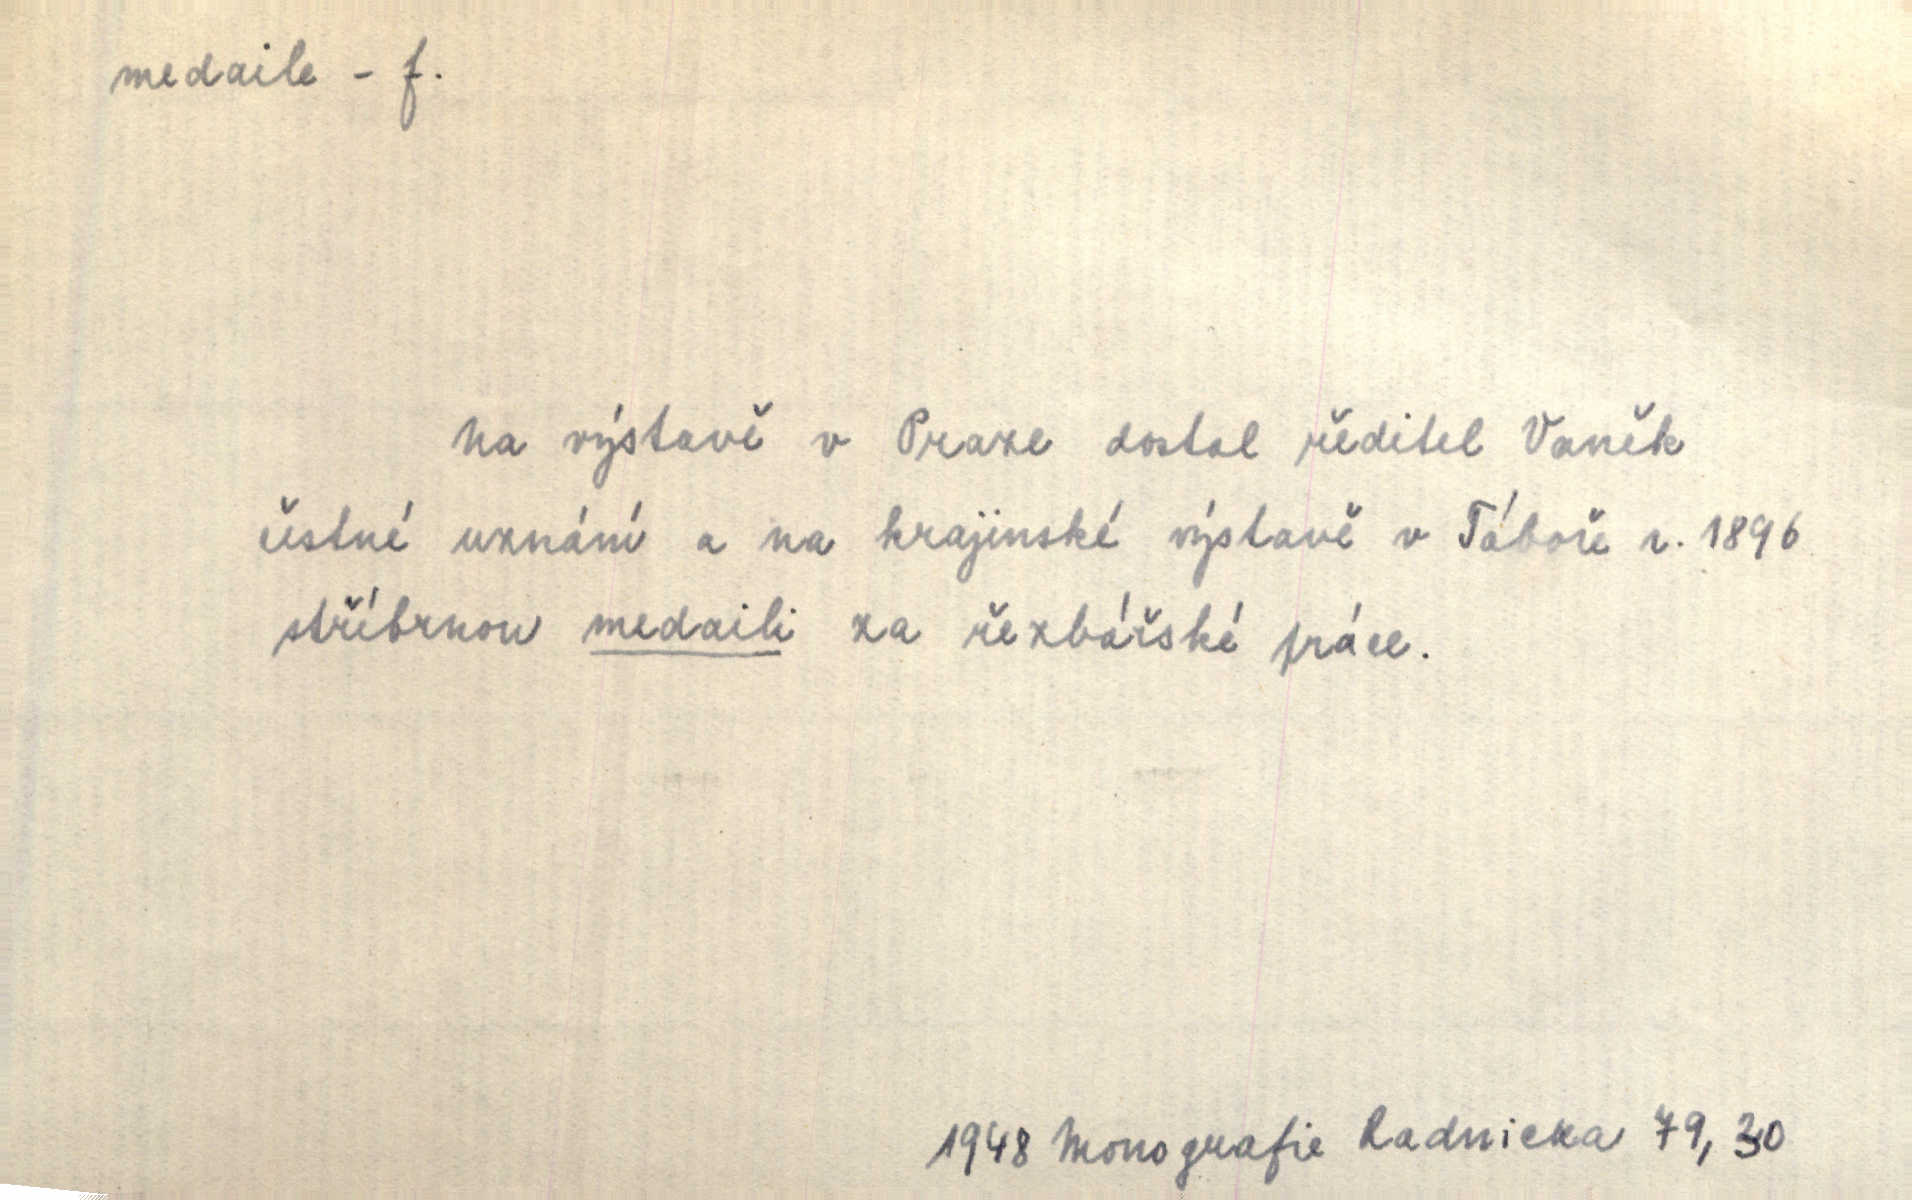 medaile - f.
Na výstavě v Praze dostal ředitel Vaněk
čestné uznání a na krajinské výstavě v Táboře r. 1896
stříbrnou medaili za řezbářské práce.
1948 Monografie Radnicka 79, 30